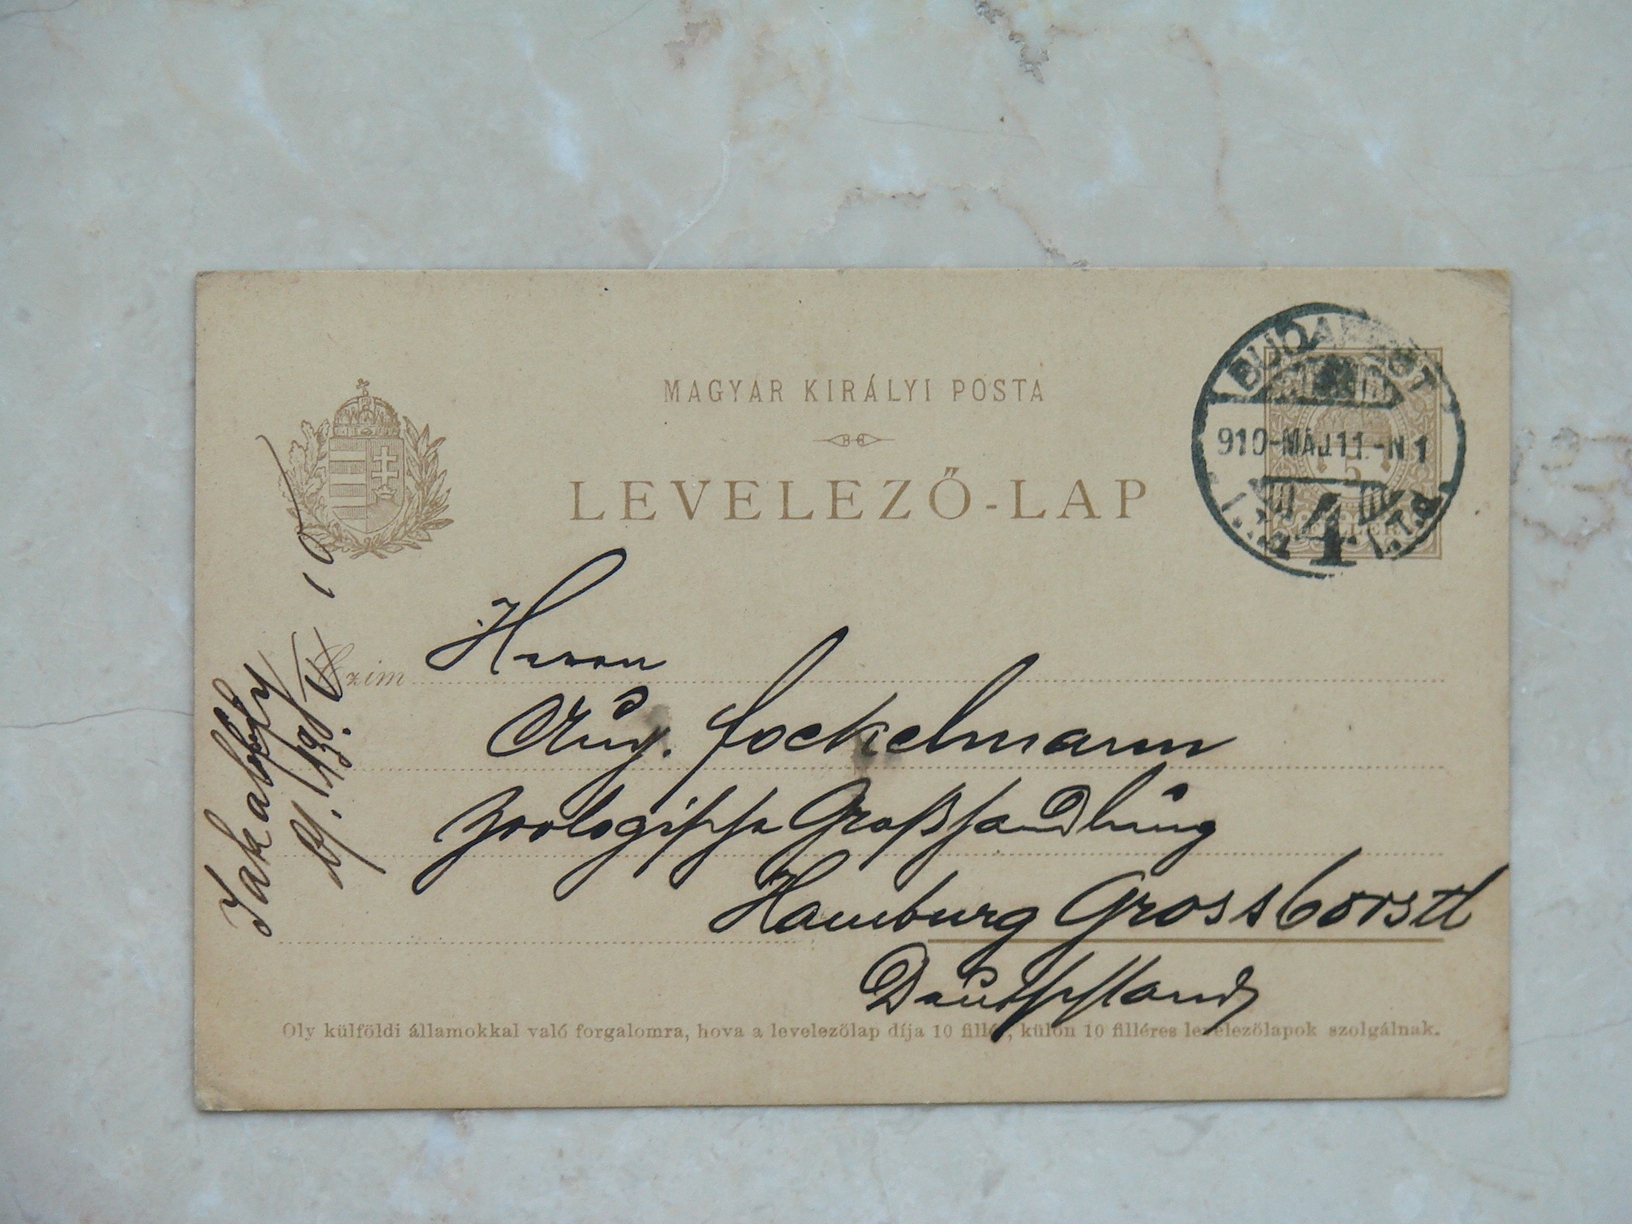 MAGYAR KIRÁLYI POSTA
LEVELEZŐ-LAP
BUDAPEST
910-MÁJ 11.-N 1
4
Czim
Herrn
Aug. Fockelmann
zoologische Großhandlung
Hamburg Grossborstl
Deutschland
Oly külföldi államokkal való forgalomra, hova a levelezőlap díja 10 fillér, külön 10 filléres levelezőlapok szolgálnak.